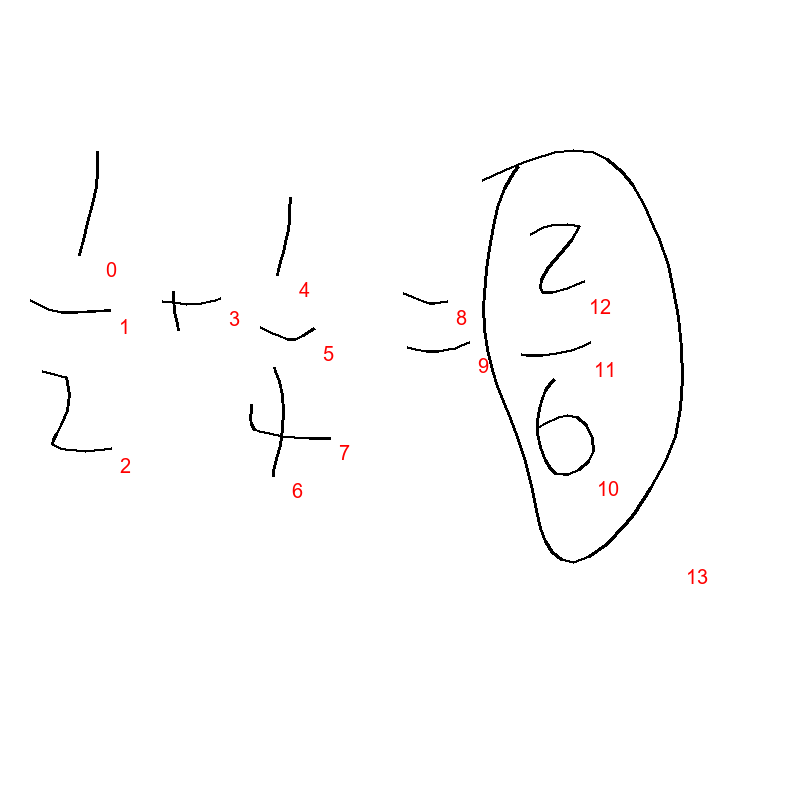 1/2 + 1/4 = 2/6
0
1
2
3
4
5
6
7
8
9
10
11
12
13